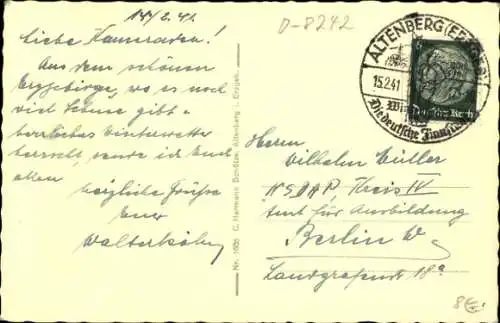 14./2.41.
D-8242
Liebe Kameraden!
Aus dem schönen
Erzgebirge, wo es noch
viel Schnee gibt u.
herrliches Winterwetter
herrscht, sende ich Euch
allen
herzliche Grüsse
Euer
Walter
Nr. 1605 C. Hermann Schütze, Altenberg i. Erzgeb.
ALTENBERG (ERZGEB)
15.2.41
Die deutsche
6
Deutsches Reich
Herrn
Wilhelm Müller
NSDAP, Kreis IV
Amt für Ausbildung
Berlin W.
Landgrafenstr 18a
8€